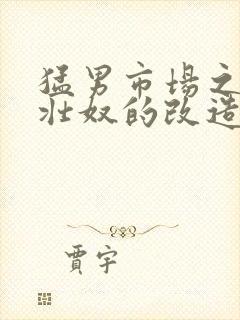 猛男市場之
壯奴的改造
賈宇